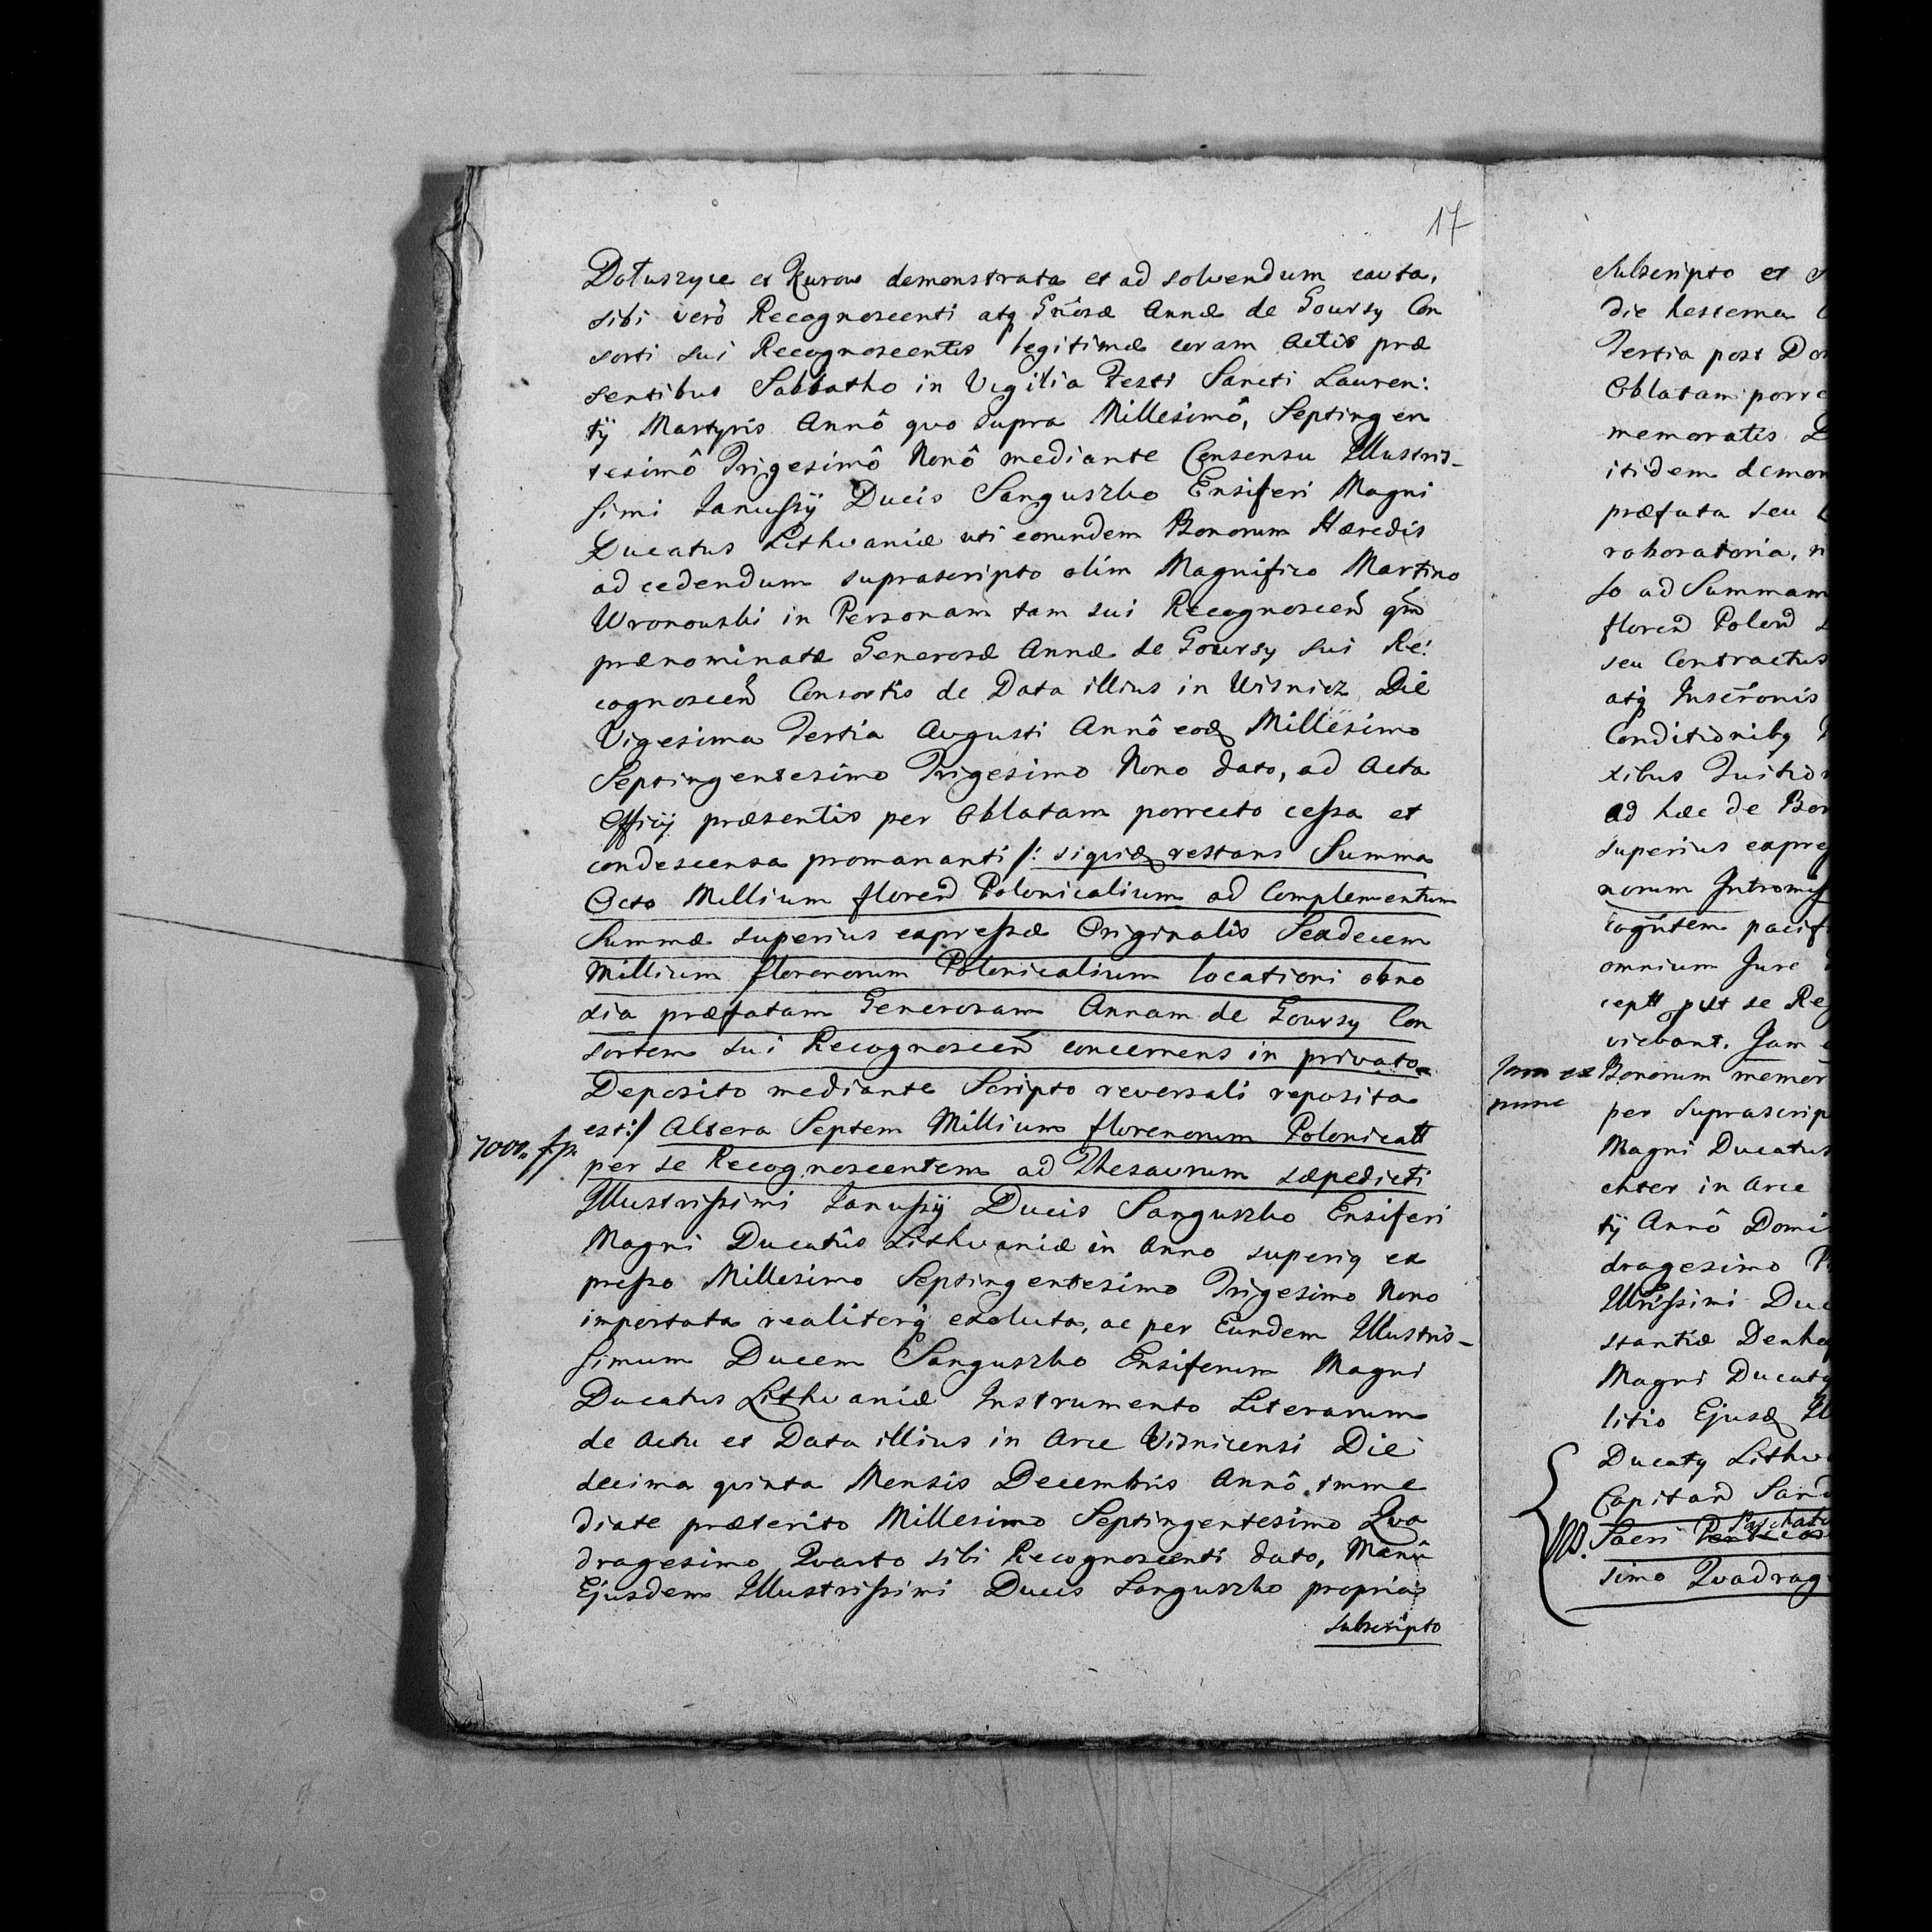 17
Dołuszyce et Kurow demonstrata et ad solvendum cauta,
sibi verò Recognoscenti atq Gnosæ Annæ de Goursy Con
sorti sui Recognoscentis legitimæ coram Actis præ
sentibus Sabbatho in Vigilia Festi Sancti Lauren:
tij Martyris Annô quo supra Millesimô, Septingen
tesimô Trigesimô Nonô mediante Consensu Illustris-
simi Janussij Ducis Sanguszko Ensiferi Magni
Ducatus Lithvaniæ uti eorundem Bonorum Hæredis
ad cedendum suprascripto olim Magnifico Martino
Wronowski in Personam tam sui Recognoscen qm
prænominatæ Generosæ Annæ de Goursy sui Re:
cognoscen Consortis de Data illius in Wisnicz Die
Vigesima Tertia Augusti Annô eod Millesimo
Septingentesimo Trigesimo Nono dato, ad Acta
Officij præsentis per Oblatam porrecto cessa et
condescensa promananti /: siquid restans Summa
Octo Millium floren Polonicalium ad Complementum
Summæ superius expressæ Originalis Sexdecem
Millium florenorum Polonicalium locationi obno
xia præfatam Generosam Annam de Goursy Con
sortem sui Recognoscen concernens in privato
Deposito mediante Scripto reversali reposita
est :/ Altera Septem Millium florenorum Polonicall
7000 fp.
per se Recognoscentem ad Thesaurum sæpedicti
Illustrissimi Janussij Ducis Sanguszko Ensiferi
Magni Ducatûs Lithvaniæ in Anno superiq ex
presso Millesimo Septingentesimo Trigesimo Nono
importata realiterq exoluta, ac per Eundem Illustris-
simum Ducem Sanguszko Ensiferum Magni
Ducatus Lithvaniæ Instrumento Literarum
de Actu et Data illius in Arce Visnicensi Die
decima quinta Mensis Decembris Annô imme
diate præterito Millesimo Septingentesimo Qua
dragesimo Quarto sibi Recognoscenti dato, Manû
Ejusdem Illustrissimi Ducis Sanguszko propria
subscripto
Subscripto et
die hesterna
Tertia post Do
Oblatam porre
memoratis
itidem demon
præfata seu
roboratoria,
so ad Summam
floren Polon
seu Contractus
atq Inscronis
Conditionibq
tibus
ad hæc de Bon
superius expres
norum Intromis
cogntem pacif
omnium Jure
se Re
viebant. Jam
Jam ex
nunc
Bonorum memor
per suprascrip
Magni Ducatus
in Arce
tij Annô Domi
dragesimo
Illrissimi Du
stantiæ Denho
Magni Ducatq
litio Ejusd Ill
Ducatq Lithv
Capitan Sand
NB. Sacri
Paschat
simo Quadrag